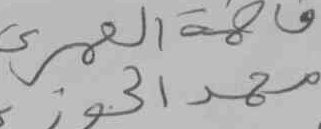 فاطمة العمري
محمد الحوز